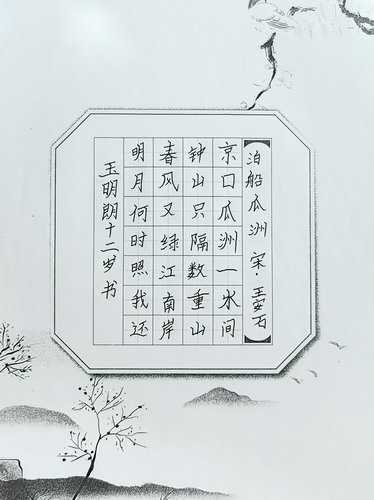 【泊船瓜洲 宋·王安石】
京口瓜洲一水间
钟山只隔数重山
春风又绿江南岸
明月何时照我还
玉明朗十二岁书